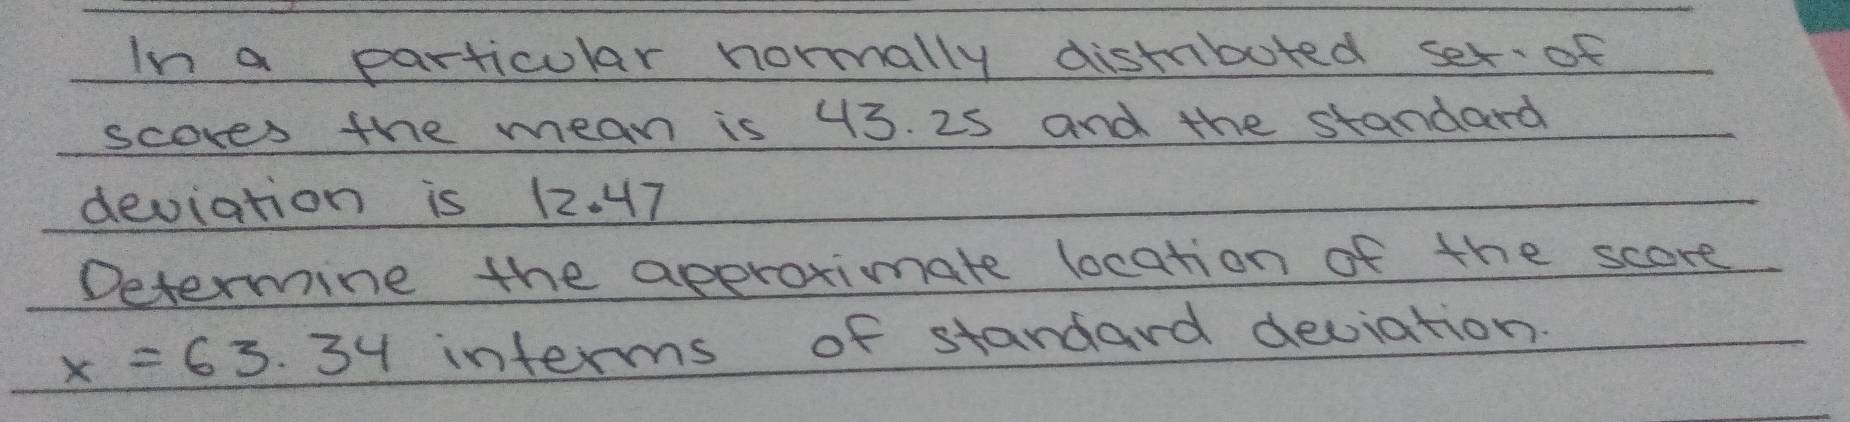 In a particular normally distributed set of
scores the mean is 43.25 and the standard
deviation is 12.47
Determine the approximate location of the score
x = 63.34 interms of standard deviation.